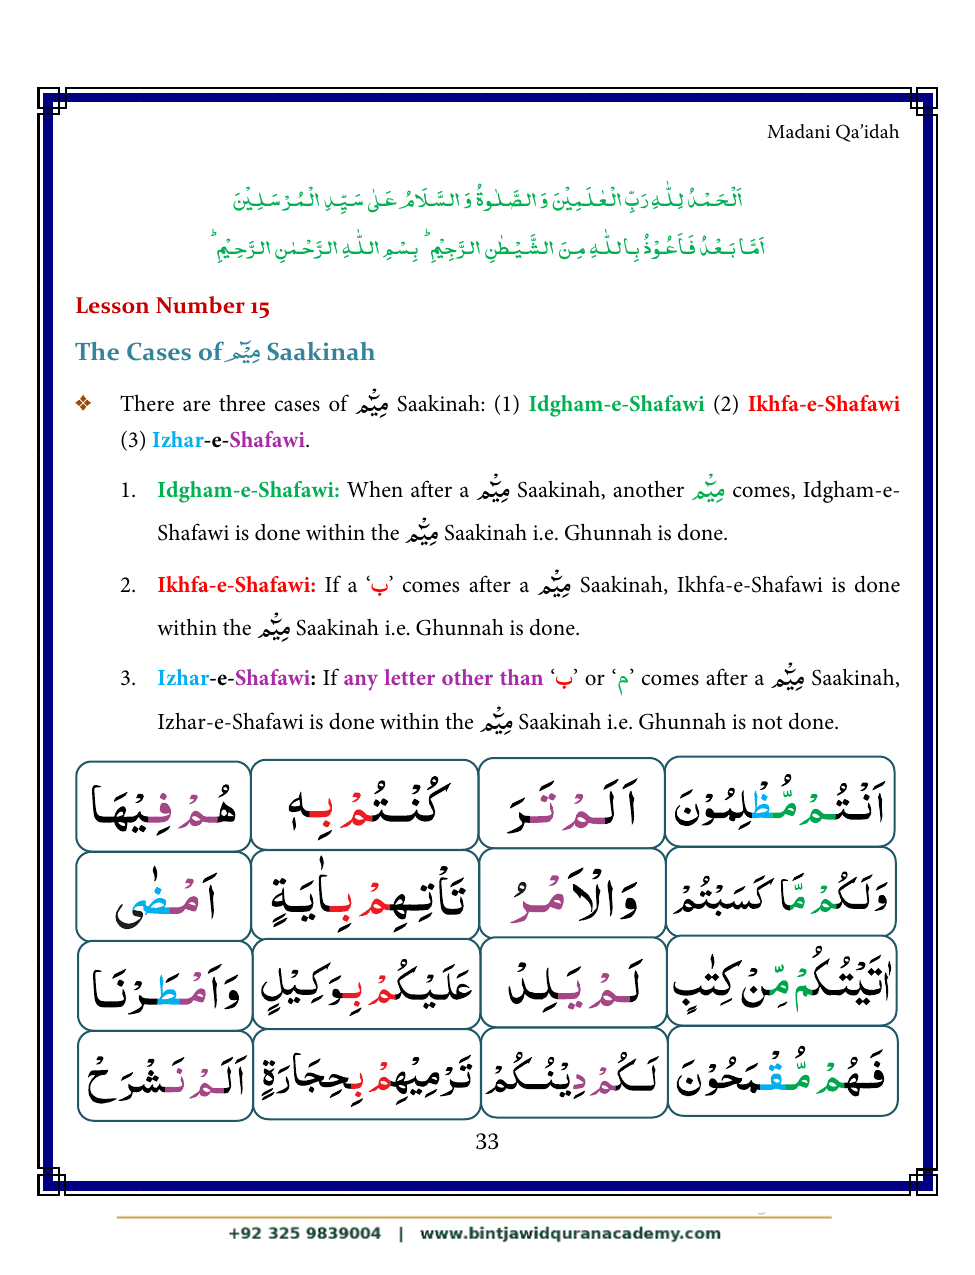 Madani Qa’idah
اَلْحَمْدُ لِلّٰهِ رَبِّ الْعٰلَمِيْنَ وَ الصَّلٰوةُ وَ السَّلَامُ عَلٰى سَيِّدِ الْمُرْسَلِيْنَ
اَمَّا بَعْدُ فَاَعُوْذُ بِاللّٰهِ مِنَ الشَّيْطٰنِ الرَّجِيْمِ ؕ بِسْمِ اللّٰهِ الرَّحْمٰنِ الرَّحِيْمِ ؕ
Lesson Number 15
The Cases of مِيْٓم Saakinah
❖ There are three cases of مِيْٓمْ Saakinah: (1) Idgham-e-Shafawi (2) Ikhfa-e-Shafawi
(3) Izhar-e-Shafawi.
1. Idgham-e-Shafawi: When after a مِيْٓمْ Saakinah, another مِيْٓمْ comes, Idgham-e-
Shafawi is done within the مِيْٓمْ Saakinah i.e. Ghunnah is done.
2. Ikhfa-e-Shafawi: If a ‘ب’ comes after a مِيْٓمْ Saakinah, Ikhfa-e-Shafawi is done
within the مِيْٓمْ Saakinah i.e. Ghunnah is done.
3. Izhar-e-Shafawi: If any letter other than ‘ب’ or ‘م’ comes after a مِيْٓمْ Saakinah,
Izhar-e-Shafawi is done within the مِيْٓمْ Saakinah i.e. Ghunnah is not done.
اَنْتُمْ مُّظْلِمُوْنَ اَلَمْ تَرَ كُنْتُمْ بِهٖ هُمْ فِيْهَا
وَلَكُمْ مَّا كَسَبْتُمْ وَالْاَمْرُ تَاْتِهِمْ بِاٰيَةٍ اَمْضٰى
اٰتَيْتُكُمْ مِّنْ كِتٰبٍ لَمْ يَلِدْ عَلَيْكُمْ بِوَكِيْلٍ وَاَمْطَرْنَا
فَهُمْ مُّقْمَحُوْنَ لَكُمْ دِيْنُكُمْ تَرْمِيْهِمْ بِحِجَارَةٍ اَلَمْ نَشْرَحْ
33
+92 325 9839004 | www.bintjawidquranacademy.com